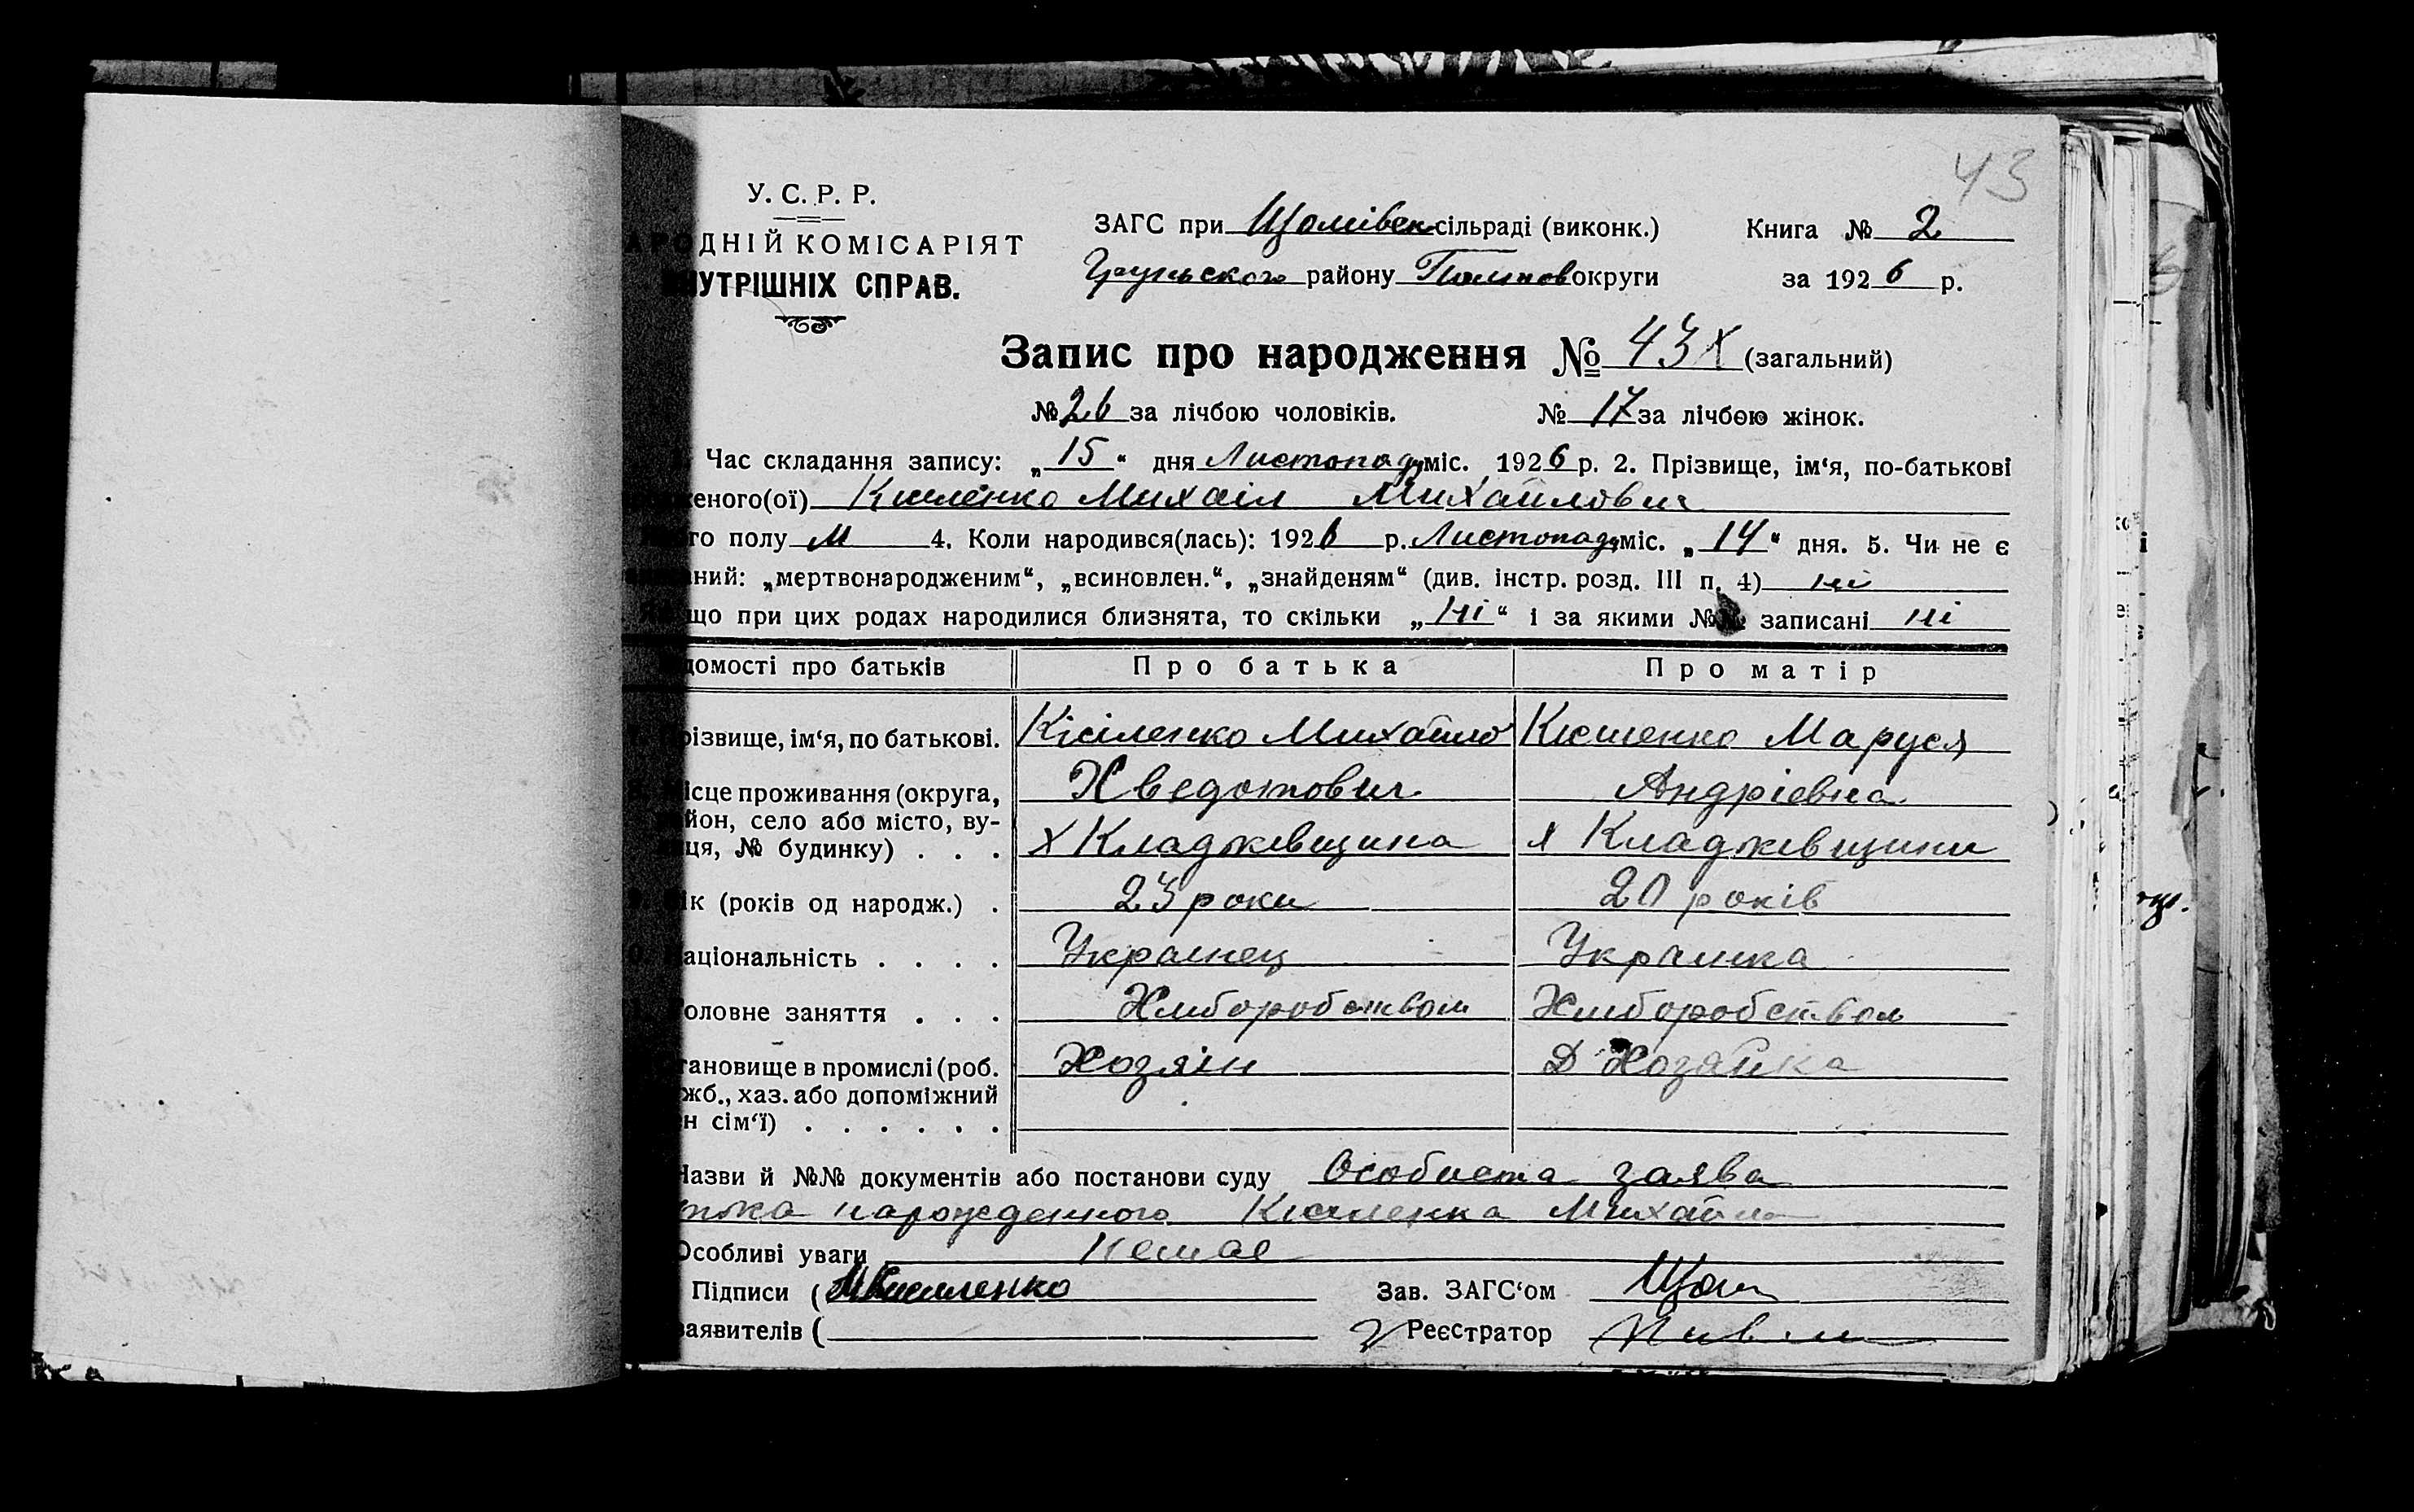 43
У. С. Р. Р.
НАРОДНІЙ КОМІСАРІЯТ
ВНУТРІШНІХ СПРАВ.
ЗАГС при сільраді (виконк.)
району округи
Книга № 2
за 1926 р.
Запис про народження № 43 (загальний)
№ 26 за лічбою чоловіків. № 17 за лічбою жінок.
Час складання запису: „15“ дня Листопаду міс. 1926 р. 2. Прізвище, ім‘я, по-батькові
женого(ої) Кисіленко Михаіл Михайлович
го полу М 4. Коли народився(лась): 1926 р. Листопаду міс. „14“ дня. 5. Чи не є
ний: „мертвонародженим“, „всиновлен.“, „знайденям“ (див. інстр. розд. III п. 4) ні
що при цих родах народилися близнята, то скільки „ні“ і за якими №№ записані ні
домості про батьків Про батька Про матір
різвище, ім‘я, по батькові. Кісіленко Михайло Кисіленко Маруся
Хведотович Андрієвна
ісце проживання (округа,
йон, село або місто, ву-
ця, № будинку) . . . х Кладжківщина х Кладжківщини
ік (років од народж.) . 23 роки 20 років
аціональність . . . . Украінец Украінка
оловне заняття . . . Хліборобством Хліборобством
тановище в промислі (роб. Хозяін Д Хозяйка
жб., хаз. або допоміжний
н сім‘ї) . . . . . .
Назви й №№ документів або постанови суду Особиста заява
тька нарожденного Кисіленка Михайла
Особливі уваги Немає
Підписи ( М Кисиленко Зав. ЗАГС‘ом
заявителів ( Реєстратор